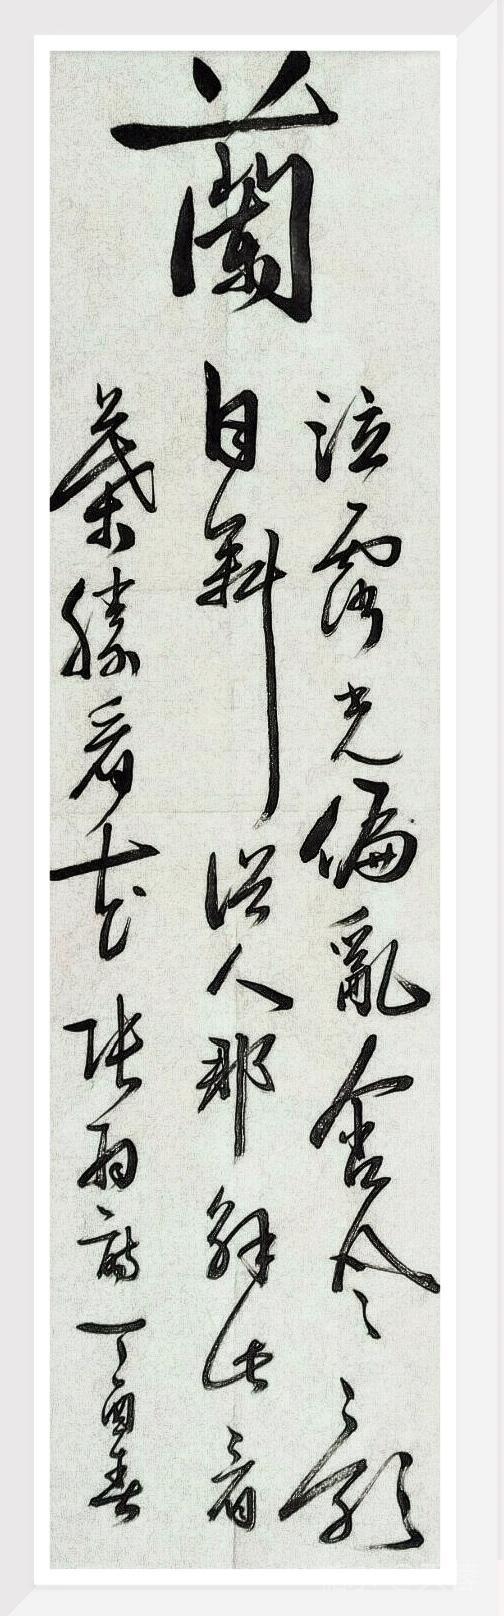 蘭
泣露光偏亂含風影
自斜俗人那解此看
葉勝看花張羽詩丁酉春